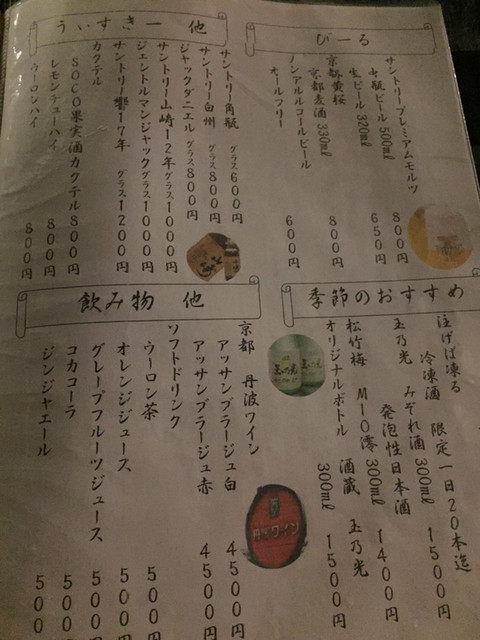 びーる
サントリープレミアムモルツ
中瓶ビール 500㎖ 800円
生ビール 320㎖ 650円
京都黄桜
京都麦酒 330㎖ 800円
ノンアルコールビール
オールフリー 600円
うぃすきー 他
サントリー角瓶 グラス600円
サントリー白州 グラス800円
ジャックダニエル グラス800円
サントリー山崎12年 グラス1000円
ジェントルマンジャック グラス1000円
サントリー響17年 グラス1200円
カクテル
SOCO果実酒カクテル 800円
レモンチューハイ 800円
ウーロンハイ 800円
季節のおすすめ
注げば凍る
冷凍酒 限定一日20本迄
みぞれ酒 300㎖ 1500円
玉乃光 発泡性日本酒
300㎖ 1400円
松竹梅 MIO澪
オリジナルボトル 酒蔵 玉乃光
300㎖ 1500円
飲み物 他
京都 丹波ワイン
アッサンブラージュ白 4500円
アッサンブラージュ赤 4500円
ソフトドリンク
ウーロン茶 500円
オレンジジュース 500円
グレープフルーツジュース 500円
コカコーラ 500
ジンジャエール 500
丹波ワイン